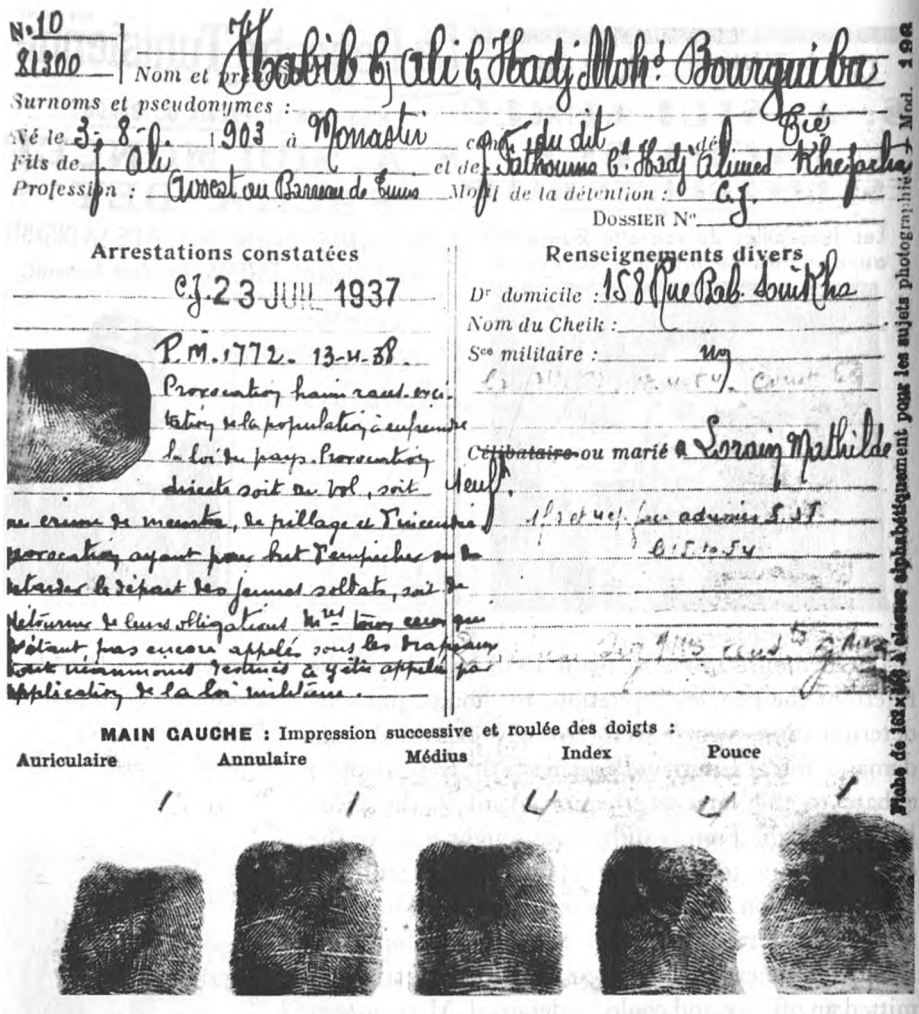 N.º 10
81300
Nom et prénoms Habib b. Ali b. Hadj Mohd Bourguiba
Surnoms et pseudonymes :
Né le 3-8- 1903 à Monastir du dit
Fils de Ali et de Fathouma bt Hadj Ahmed Khefacha
Profession : Avocat au Barreau de Tunis Motif de la détention : C.J.
DOSSIER Nº
Arrestations constatées
C.J. 23 JUIL 1937
P.M. 1772. 13-4-38
Provocation haine races exci-
tation de la population à enfreindre
la loi du pays. Provocation
directe soit au vol, soit
au crime de meurtre, de pillage et d'incendie
provocation ayant pour but d'empêcher ou de
retarder le départ des jeunes soldats, soit de
détourner de leurs obligations mres tous ceux qui
n'étant pas encore appelés sous les drapeaux
sont néanmoins destinés à y être appelés par
application de la loi militaire.
Renseignements divers
Dr domicile : 158 Rue Bab. Souikha
Nom du Cheik :
Sce militaire :
Célibataire ou marié à Lorain Mathilde
MAIN GAUCHE : Impression successive et roulée des doigts :
Auriculaire Annulaire Médius Index Pouce
Fiche de 162×142 à classer alphabétiquement pour les sujets photographiés. — Mod. 198